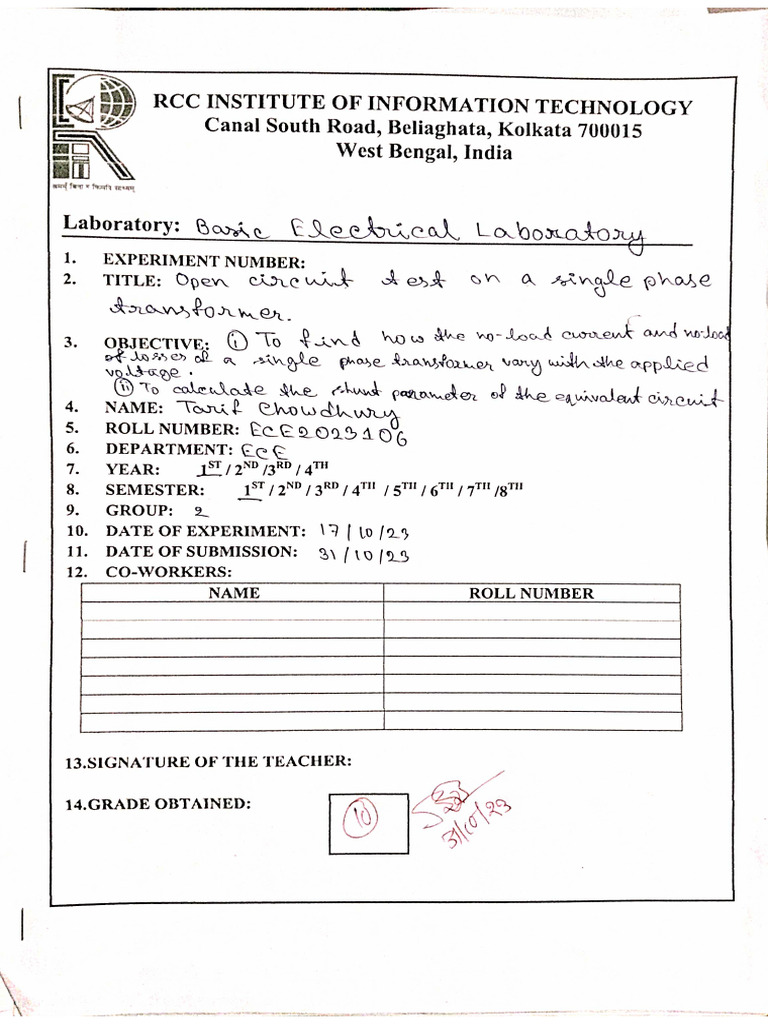 RCC INSTITUTE OF INFORMATION TECHNOLOGY
Canal South Road, Beliaghata, Kolkata 700015
West Bengal, India
Laboratory: Basic Electrical Laboratory
1. EXPERIMENT NUMBER:
2. TITLE: Open circuit test on a single phase
transformer.
3. OBJECTIVE: (i) To find how the no-load current and no-load
of losses of a single phase transformer vary with the applied
voltage.
(ii) To calculate the shunt parameter of the equivalent circuit
4. NAME: Tarif Chowdhury
5. ROLL NUMBER: ECE2023106
6. DEPARTMENT: ECE
7. YEAR: 1ST / 2ND /3RD / 4TH
8. SEMESTER: 1ST / 2ND / 3RD / 4TH / 5TH / 6TH / 7TH /8TH
9. GROUP: 2
10. DATE OF EXPERIMENT: 17/10/23
11. DATE OF SUBMISSION: 31/10/23
12. CO-WORKERS:
NAME ROLL NUMBER
13.SIGNATURE OF THE TEACHER:
14.GRADE OBTAINED: 10
31/10/23